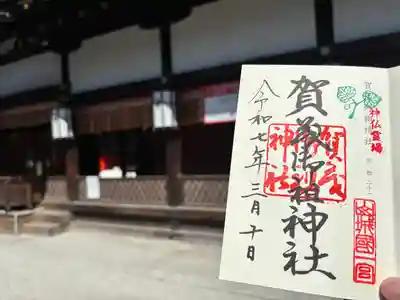 神仏霊場
賀茂御祖神社
賀茂
御祖
神社
山城國一宮
令和七年三月十日